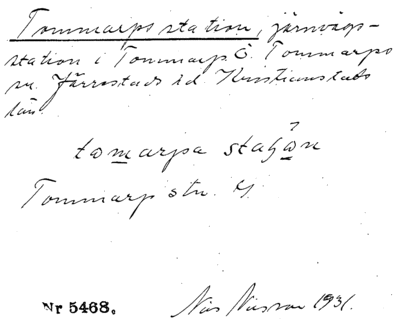 Tommarps station, järnvägs-
station i Tommarp Ö. Tommarps
sn. Järrestads hd Kristianstads
län.
tomarpa
Tommarp stn.
Nr 5468.
Nils Nilsson 1931.